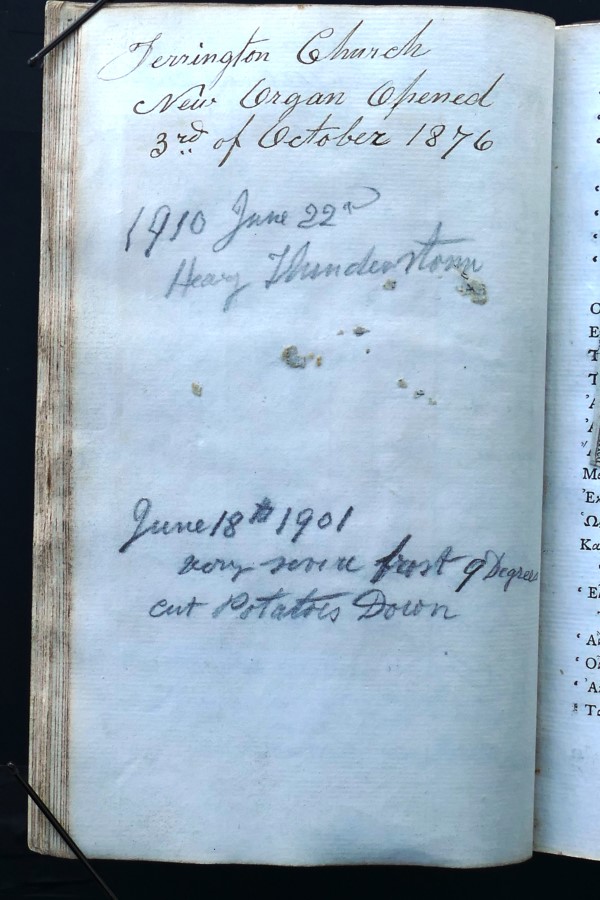 Terrington Church
New Organ Opened
3rd of October 1876
1910 June 22nd
Heavy Thunderstorm
June 18th 1901
very severe frost 9 Degrees
cut Potatoes Down